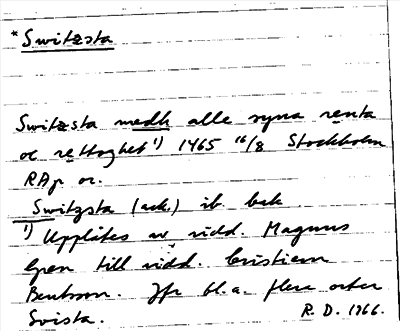 * Switzsta
Switzsta medh alle syna renta
oc rettoghet 1) 1465 16/8 Stockholm
RAp or.
Switzsta (ack.) ib. bak
1) Upplåtes av ridd. Magnus
Gren till ridd. Cristiern
Bentsson. Jfr bl.a. flera orter
Svista. R. D. 1966.